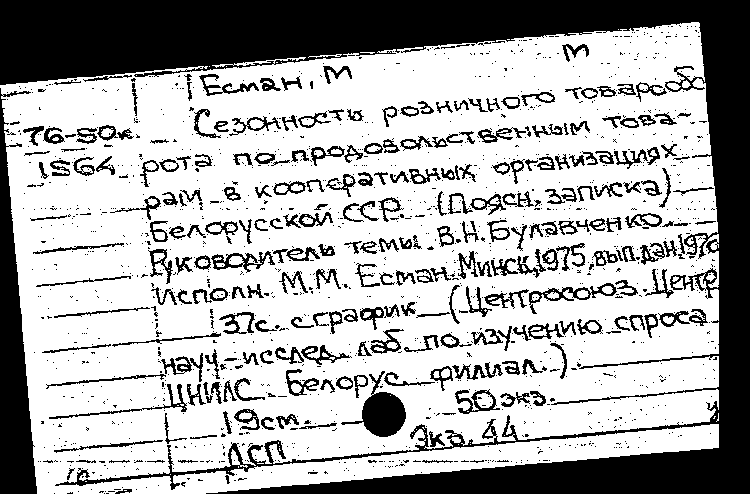 Есман, М М
76-50к Сезонность розничного товарообо
1564 рота по продовольственным това-
рам в кооперативных организациях
Белорусской ССР. (Поясн. записка)
Руководитель темы В.Н. Булавченко
Исполн. М.М. Есман. Минск, 1975, вып.дан.1976
37с. с график (Центросоюз. Центр
науч.-исслед. лаб. по изучению спроса
ЦНИЛС. Белорус. филиал.).
19см. 50 экз.
ДСП Экз. 44. у